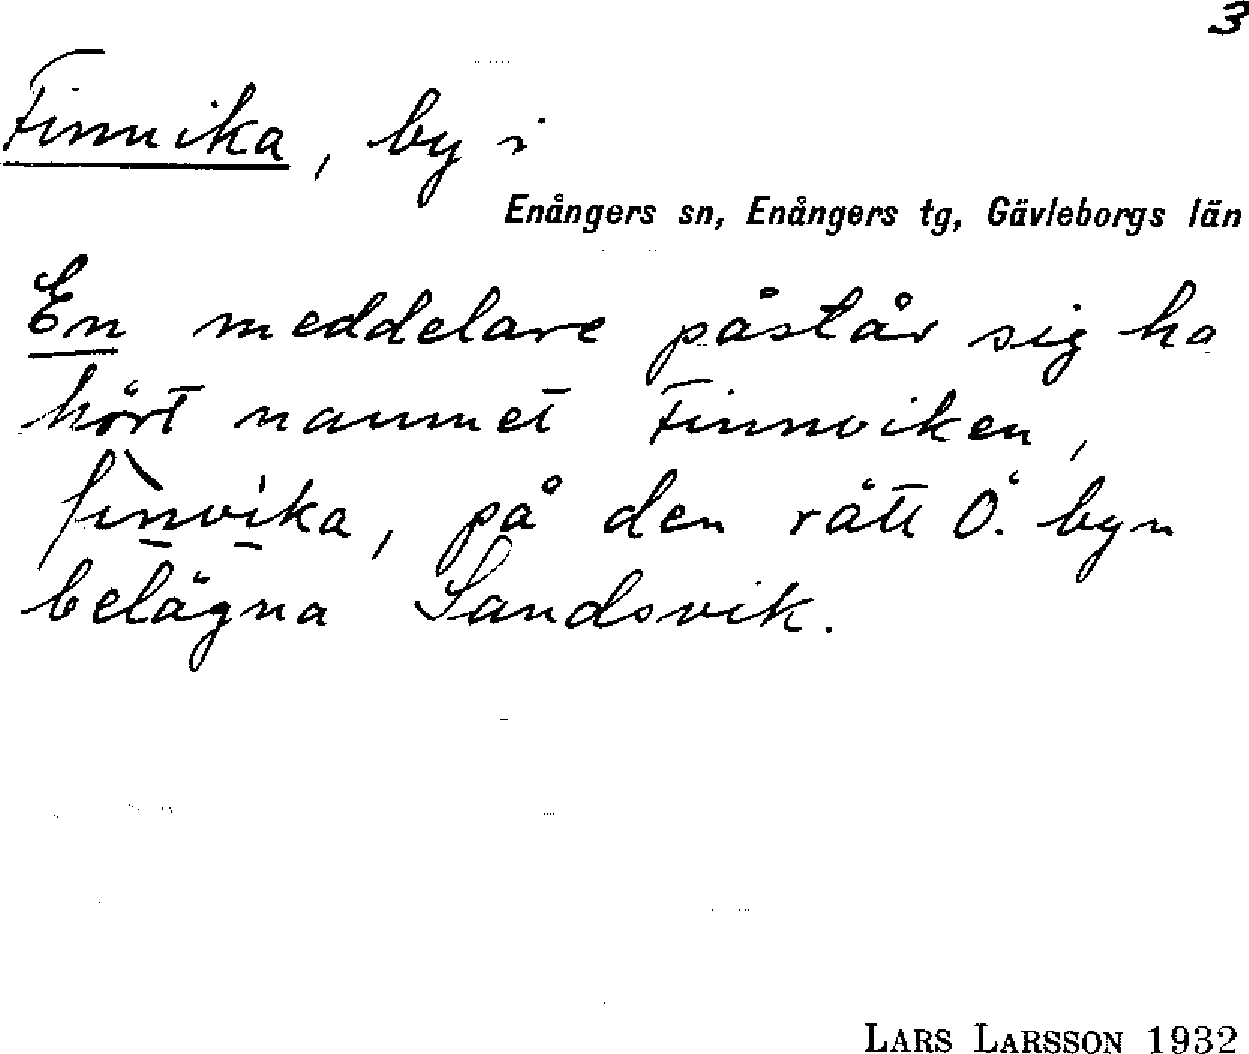 3
Finnika, by i
Enångers sn, Enångers tg, Gävleborgs län
En meddelare påstår sig ha
hört namnet Finnviken,
finvika, på den rätt Ö. byn
belägna Sandsvik.
LARS LARSSON 1932